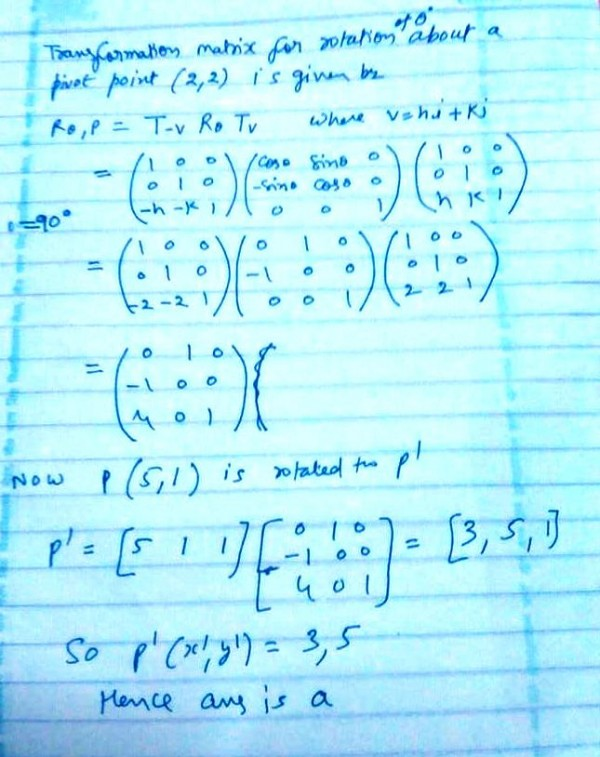 of θ°
Transformation matrix for rotation about a
pivot point (2,2) is given by
Rθ,P = T-v Rθ Tv where v=hi+Kj
= (1 0 0 / 0 1 0 / -h -K 1) (cosθ sinθ 0 / -sinθ cosθ 0 / 0 0 1) (1 0 0 / 0 1 0 / h K 1)
=90°
= (1 0 0 / 0 1 0 / -2 -2 1) (0 1 0 / -1 0 0 / 0 0 1) (1 0 0 / 0 1 0 / 2 2 1)
= (0 1 0 / -1 0 0 / 4 0 1)
NOW P (5,1) is rotated to P'
P' = [5 1 1] [0 1 0 / -1 0 0 / 4 0 1] = [3, 5, 1]
So P'(x',y') = 3,5
Hence ans is a